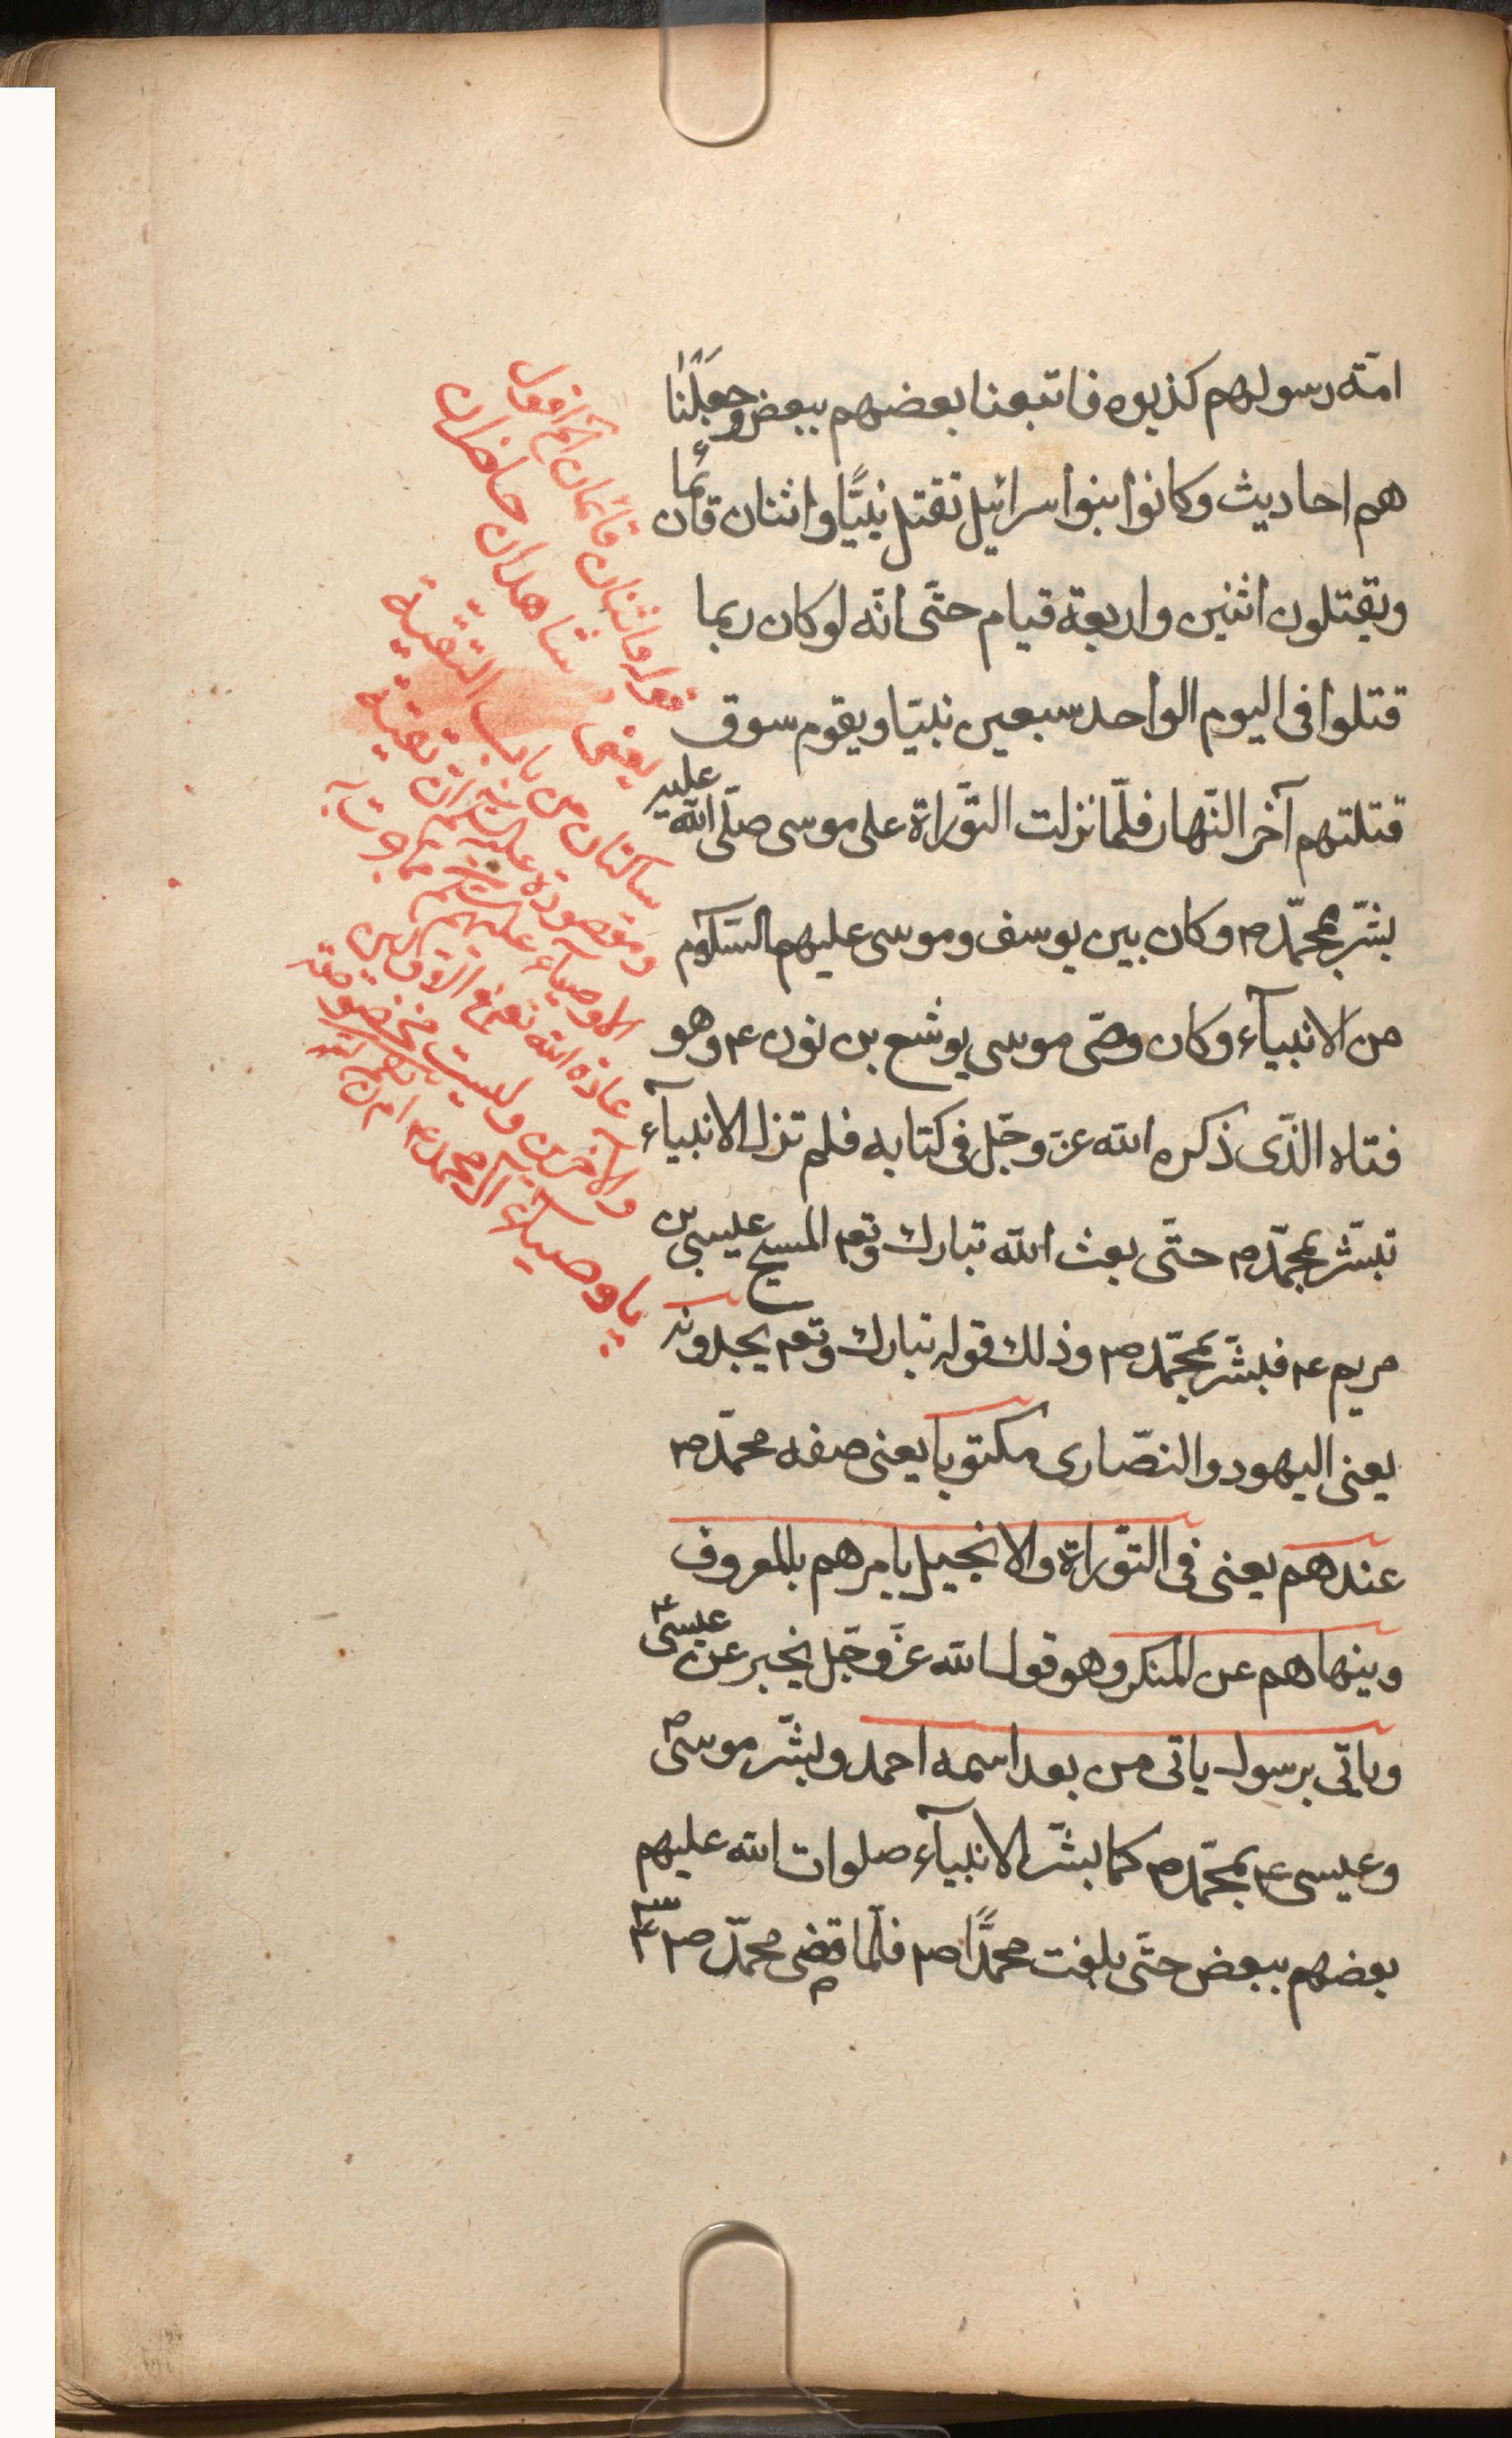 امّة رسولهم كذبوه فاتبعنا بعضهم ببعض وجعلنا
هم احاديث وكانوا بنوا سرائيل تقتل نبيًّا واثنان قائمان
ويقتلون اثنين واربعة قيام حتّى انّه لو كان ربما
قتلوا فى اليوم الواحد سبعين نبيّا ويقوم سوق
قتلتهم آخر النّهار فلمّا نزلت التّوراة على موسى صلّى الله عليه
بشّر بمحمّد ص وكان بين يوسف وموسى عليهم السّلام
من الانبيآء وكان وصّى موسى يوشع بن نون ع وهو
فتاه الذّى ذكره الله عزّ وجّل فى كتابه فلم تزل الانبيآء
تبشّر بمحمّد ص حتّى بعث الله تبارك وتعم المسيح عيسى بن
مريم ع فبشّر بمحمّد ص وذلك قوله تبارك وتعم يجدونه
يعنى اليهود والنصّارى مكتوبا يعنى صفه محمّد ص
عندهم يعنى فى التوّراة والانجيل يامرهم بالمعروف
وينهاهم عن المنكر وهو قول الله عزّ وجّل يخبر عن عيسى ع
وياتى برسول ياتى من بعد اسمه احمد وبشّر موسى
وعيسى ع بمحمّد ص كما بشّر الانبيآء صلوات الله عليهم
بعضهم ببعض حتّى بلغت محمدًّا ص فلمّا قضى محمّد ص
قوله واثنان قائمان الخ اقول
يعنى شاهدان حاضران
ساكتان من باب التقية
ومقصوده عليه السلم ان تقية
الاوصيآء عليهم السلم مما جرت به
عادة الله تعم فى الاولين
والآخرين وليست مخصوصة
باوصيآء آل محمد ع